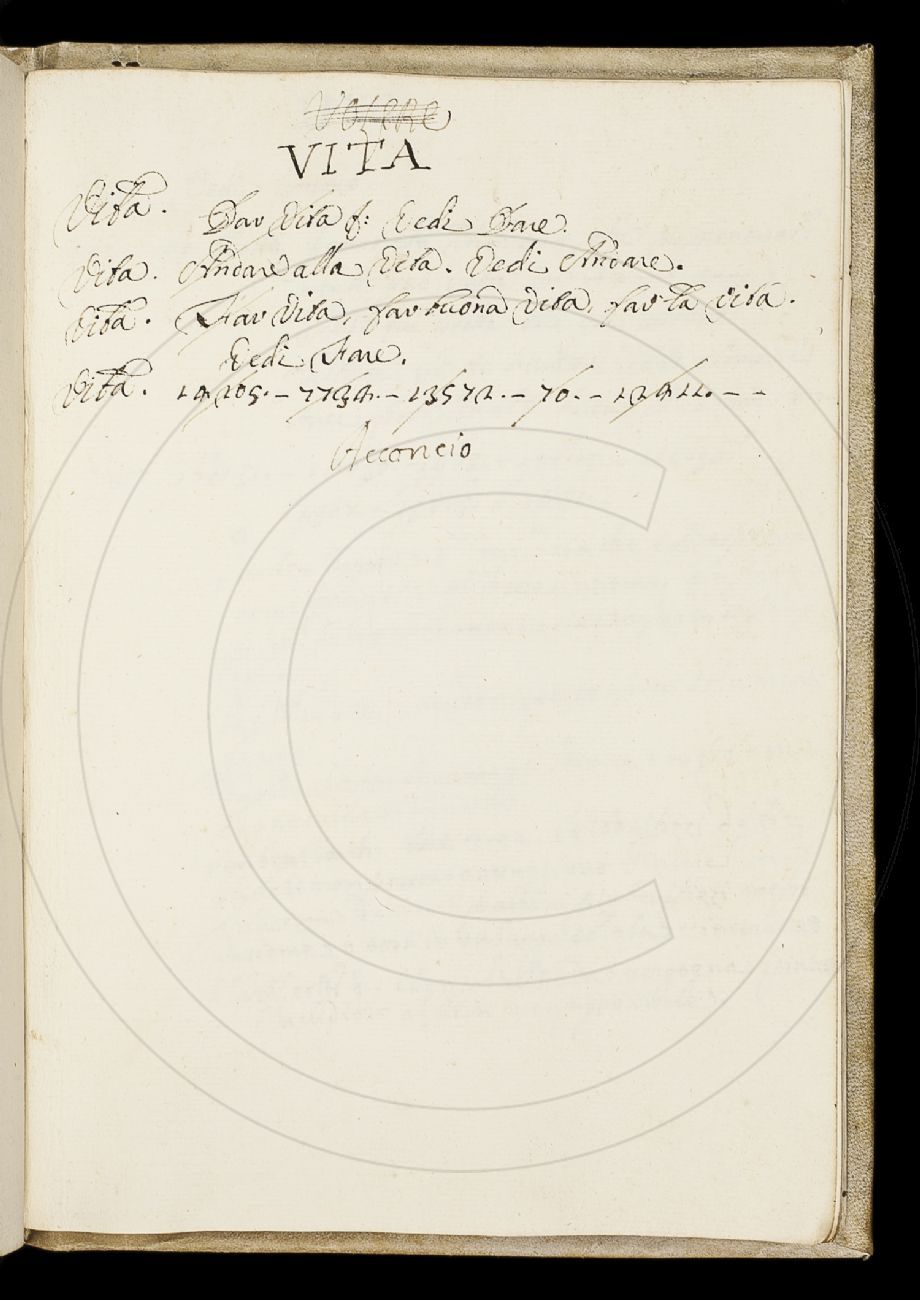 VITA
Vita. Dar Vita &: Vedi Dare.
Vita. Andare alla Vita. Vedi Andare.
Vita. Far Vita, far buona Vita, far la vita.
Vedi Fare.
Vita. 14205. – 7734. – 13572. – 70. – 12411. – –
Acconcio